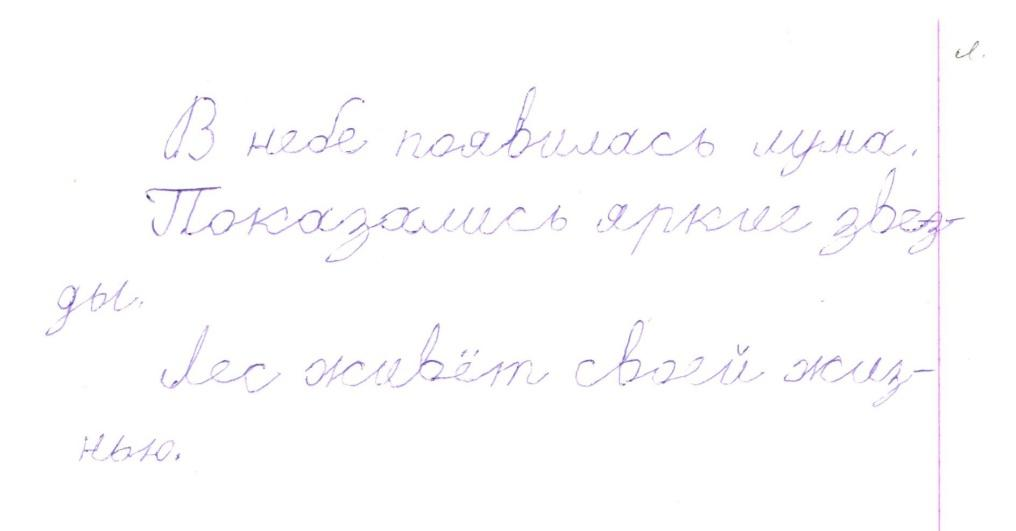 л.
В небе появилась луна.
Показались яркие звез-
ды.
Лес живёт своей жиз-
нью.